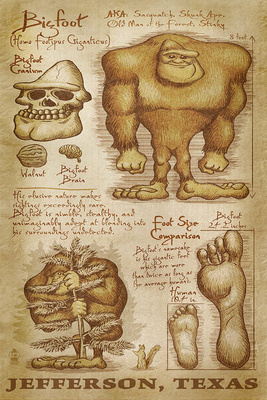 Bigfoot
(Homo Footipus Giganticus)
AKA: Sasquatch, Skunk Ape,
Old Man of the Forest, Stinky
8 feet
Bigfoot
Cranium
Walnut
Bigfoot
Brain
His elusive nature makes
sightings exceedingly rare.
Bigfoot is nimble, stealthy, and
unimaginably adept at blending into
his surroundings undetected.
Foot Size
Comparison
Bigfoot's namesake
is his gigantic feet
which are more
than twice as long as
the average human's.
Bigfoot
24 inches
Human
10.4 in.
JEFFERSON, TEXAS